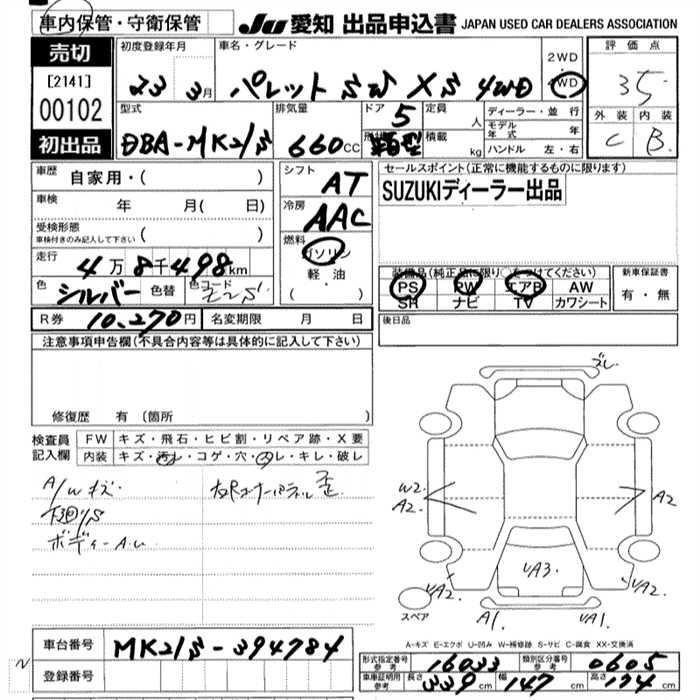 車内保管・守衛保管
JU 愛知 出品申込書 JAPAN USED CAR DEALERS ASSOCIATION
売切
[2141]
00102
初出品
初度登録年月
23 3月
車名・グレード
パレット SW XS 4WD
2WD
4WD
評価点
3.5
外装 内装
C B
型式
DBA-MK21S
排気量
660cc
ドア
5
形状
定員 人
積載 kg
ディーラー・並行
モデル年式 年
ハンドル 左・右
車歴 自家用・( )
車検 年 月( 日)
受検形態
車検付きのみ記入して下さい ( )
走行 4万8千498km
色 シルバー 色替 色コード Z2S
シフト AT
冷房 AAC
燃料 ガソリン
軽油
( )
セールスポイント(正常に機能するものに限ります)
SUZUKIディーラー出品
装備品(純正品に限り○をつけてください)
PS PW エアB AW
SR ナビ TV カワシート
新車保証書
有・無
R券 10,270円 名変期限 月 日
後日品
注意事項申告欄(不具合内容等は具体的に記入して下さい)
修復歴 有 (箇所 )
検査員記入欄
FW キズ・飛石・ヒビ割・リペア跡・X要
内装 キズ・汚レ・コゲ・穴・スレ・キレ・破レ
A/Wキズ
下廻りS
ボディーA.U
ズレ
W2.
A2.
A2
UA3.
UA2.
UA2.
A1.
UA1.
スペア
A-キズ E-エクボ U-凹み W-補修跡 S-サビ C-腐食 XX-交換済
車台番号 MK21S-394784
登録番号
形式指定番号 参考 16033 類別区分番号 参考 0605
車庫証明用 参考 長さ 339cm 幅 147cm 高さ 174cm